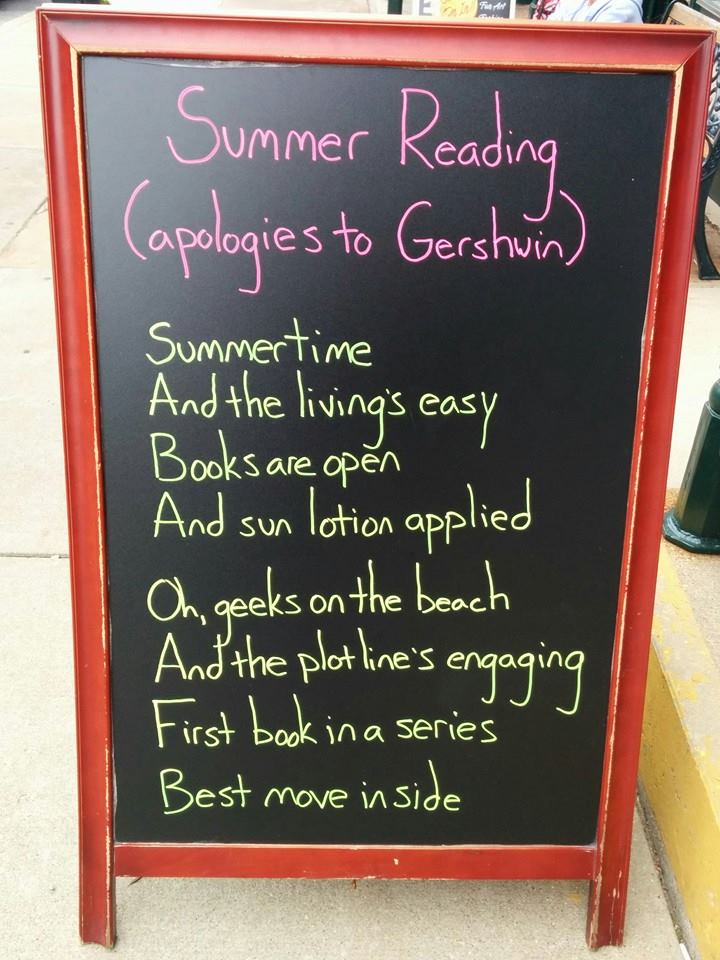 Summer Reading
(apologies to Gershwin)
Summertime
And the living's easy
Books are open
And sun lotion applied
Oh, geeks on the beach
And the plot line's engaging
First book in a series
Best move inside